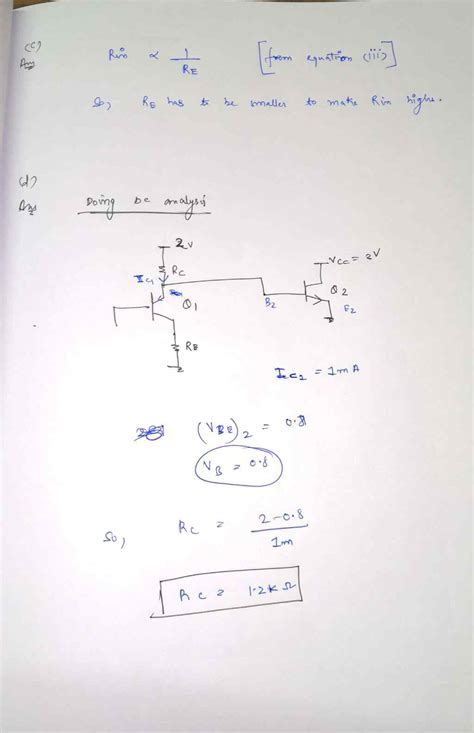 (c)
Ans
Rin ∝ 1/RE [from equation (iii)]
So, RE has to be smaller to make Rin higher.
(d)
Ans
Doing DC analysis
2V
RC
IC1
Q1
RE
VCC = 2V
B2
Q2
E2
IC2 = 1mA
(VBE)2 = 0.8
VB = 0.8
So, RC = (2-0.8)/1m
RC = 1.2kΩ